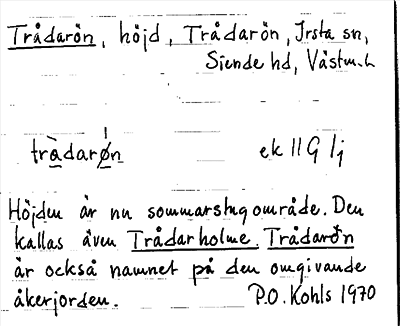 Trådarön, höjd, Trådarön, Irsta sn,
Siende hd, Västm. L
trådarøn ek 11G 1j
Höjden är nu sommarstugområde. Den
kallas även Trådarholme. Trådarön
är också namnet på den omgivande
åkerjorden. P.O. Kohls 1970